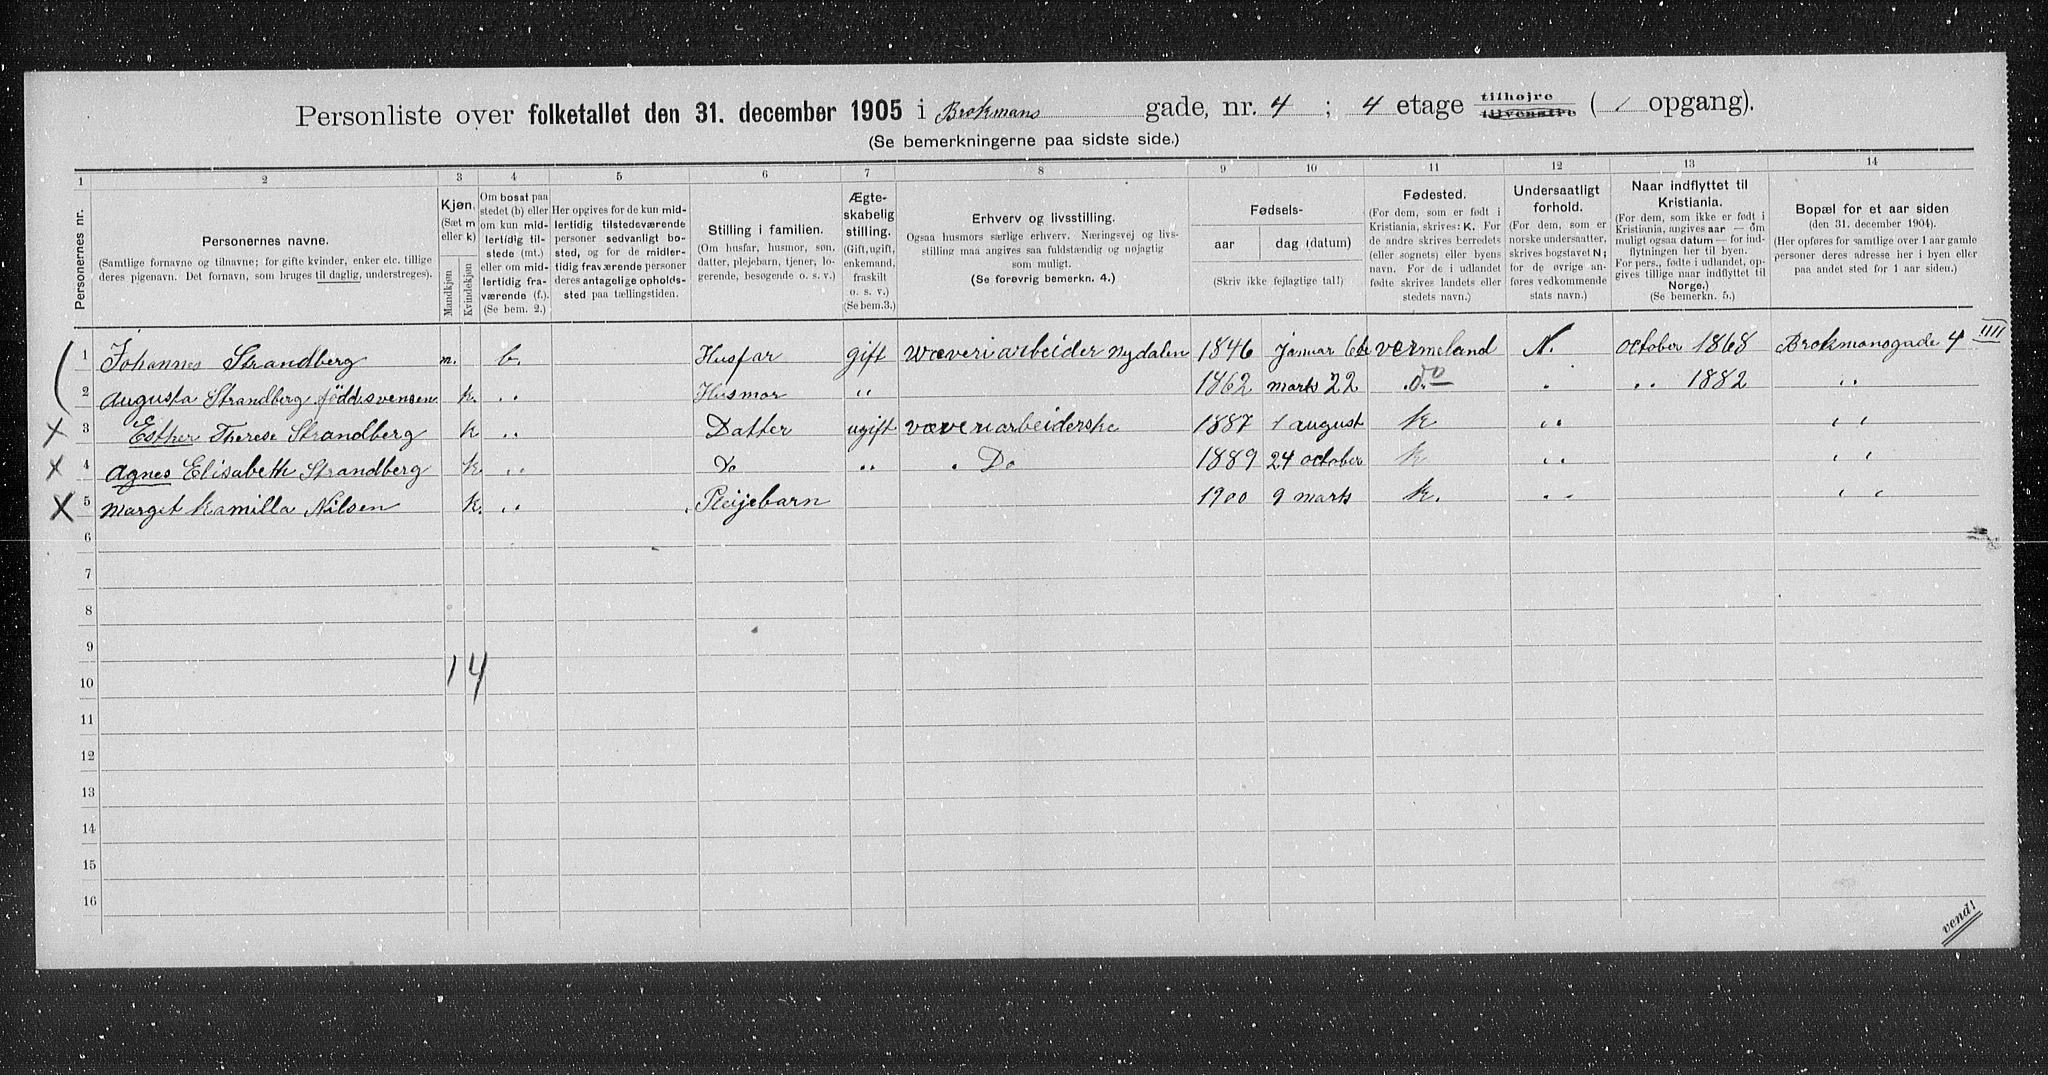 Personliste over folketallet den 31. december 1905 i Brokmans gade, nr. 4 ; 4 etage tilhøjre tilvenstre ( 1 opgang).
(Se bemerkningerne paa sidste side.)
1 2 3 4 5 6 7 8 9 10 11 12 13 14
Personernes nr.
Personernes navne.
(Samtlige fornavne og tilnavne; for gifte kvinder, enker etc. tillige
deres pigenavn. Det fornavn, som bruges til daglig, understreges).
Kjøn.
(Sæt m
eller k)
Mandkjøn
Kvindekjøn
Om bosat paa
stedet (b) eller
om kun mid-
lertidig til-
stede (mt.)
eller om mid-
lertidig fra-
værende (f.).
(Se bem. 2.)
Her opgives for de kun mid-
lertidig tilstedeværende
personer sedvanlig bo-
sted, og for de midler-
tidig fraværende personer
deres antagelige opholds-
sted paa tællingstiden.
Stilling i familien.
(Om husfar, husmor, søn,
datter, plejebarn, tjener, lo-
gerende, besøgende o. s. v.)
Ægte-
skabelig
stilling.
(Gift, ugift,
enkemand,
fraskilt
o. s. v.)
(Se bem.3.)
Erhverv og livsstilling.
Ogsaa husmors særlige erhverv. Næringsvej og livs-
stilling maa angives saa fuldstændig og nøjagtig
som muligt.
(Se forøvrig bemerkn. 4.)
Fødsels-
aar
dag (datum)
(Skriv ikke fejlagtige tal!)
Fødested.
(For dem, som er født i
Kristiania, skrives: K. For
de andre skrives herredets
(eller sognets) eller byens
navn. For de i udlandet
fødte skrives landets eller
stedets navn.)
Undersaatligt
forhold.
(For dem, som er
norske undersaatter,
skrives bogstavet N;
for de øvrige an-
føres vedkommende
stats navn.)
Naar indflyttet til
Kristiania.
(For dem, som ikke er født i
Kristiania, angives aar — om
muligt ogsaa datum — for ind-
flytningen her til byen.
For pers., fødte i udlandet, op-
gives tillige naar indflyttet til
Norge.)
(Se bemerkn. 5.)
Bopæl for et aar siden
(den 31. december 1904).
(Her opføres for samtlige over 1 aar gamle
personer deres adresse her i byen eller
paa andet sted for 1 aar siden.)
1 Johannes Strandberg m. b. Husfar gift Wæveriarbeider Nydalen 1846 Januar 6te vermeland N. october 1868 Brokmansgade 4 IIII
2 Augusta Strandberg född svensen k. " Husmor " 1862 marts 22 do " " 1882 "
3 Esther Therese Strandberg k " Datter ugift væveriarbeiderske 1887 1 august k " "
4 Agnes Elisabeth Strandberg k. " Do " " Do 1889 24 october k " "
5 Marget Kamilla Nilsen k. " Pleijebarn 1900 9 marts k. " "
6
7
8
9
1 4
10
11
12
13
14
15
16
vend!